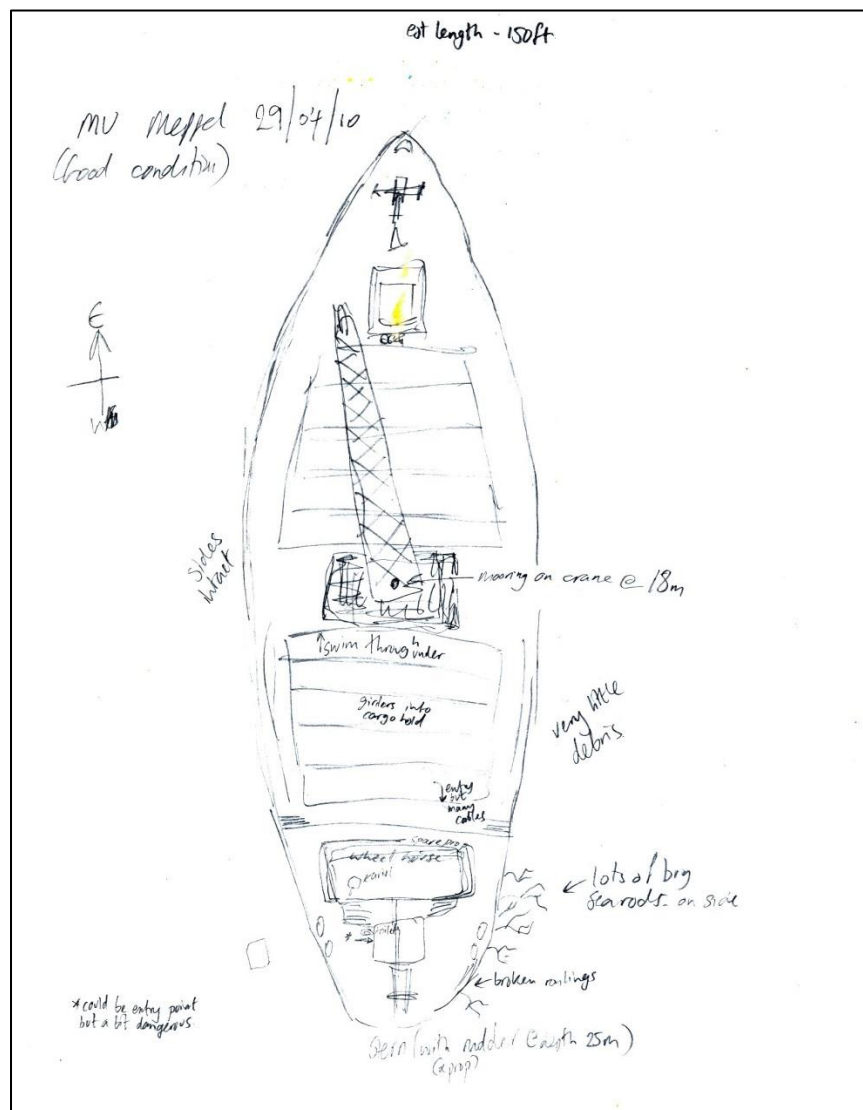 est length - 150ft
MV Meppel 29/04/10
(Good condition)
E
W
sides
intact
mooring on crane @ 18m
↑swim through
under
girders into
cargo hold
very little
debris
entry
but
many
cables
spare prop
wheel house
← lots of big
searods - on side
*
← broken railings
*could be entry point
but a bit dangerous
stern (with rudder @ depth 25m)
(x prop)